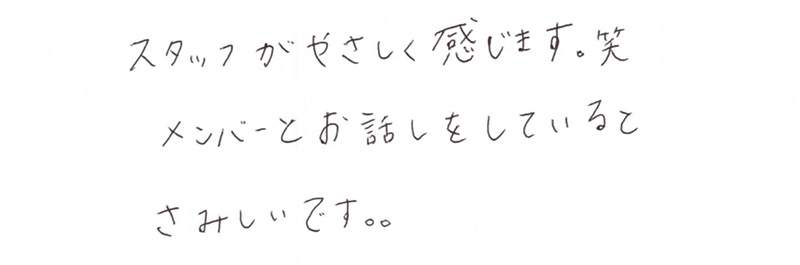 スタッフがやさしく感じます。笑
メンバーとお話しをしていると
さみしいです。。